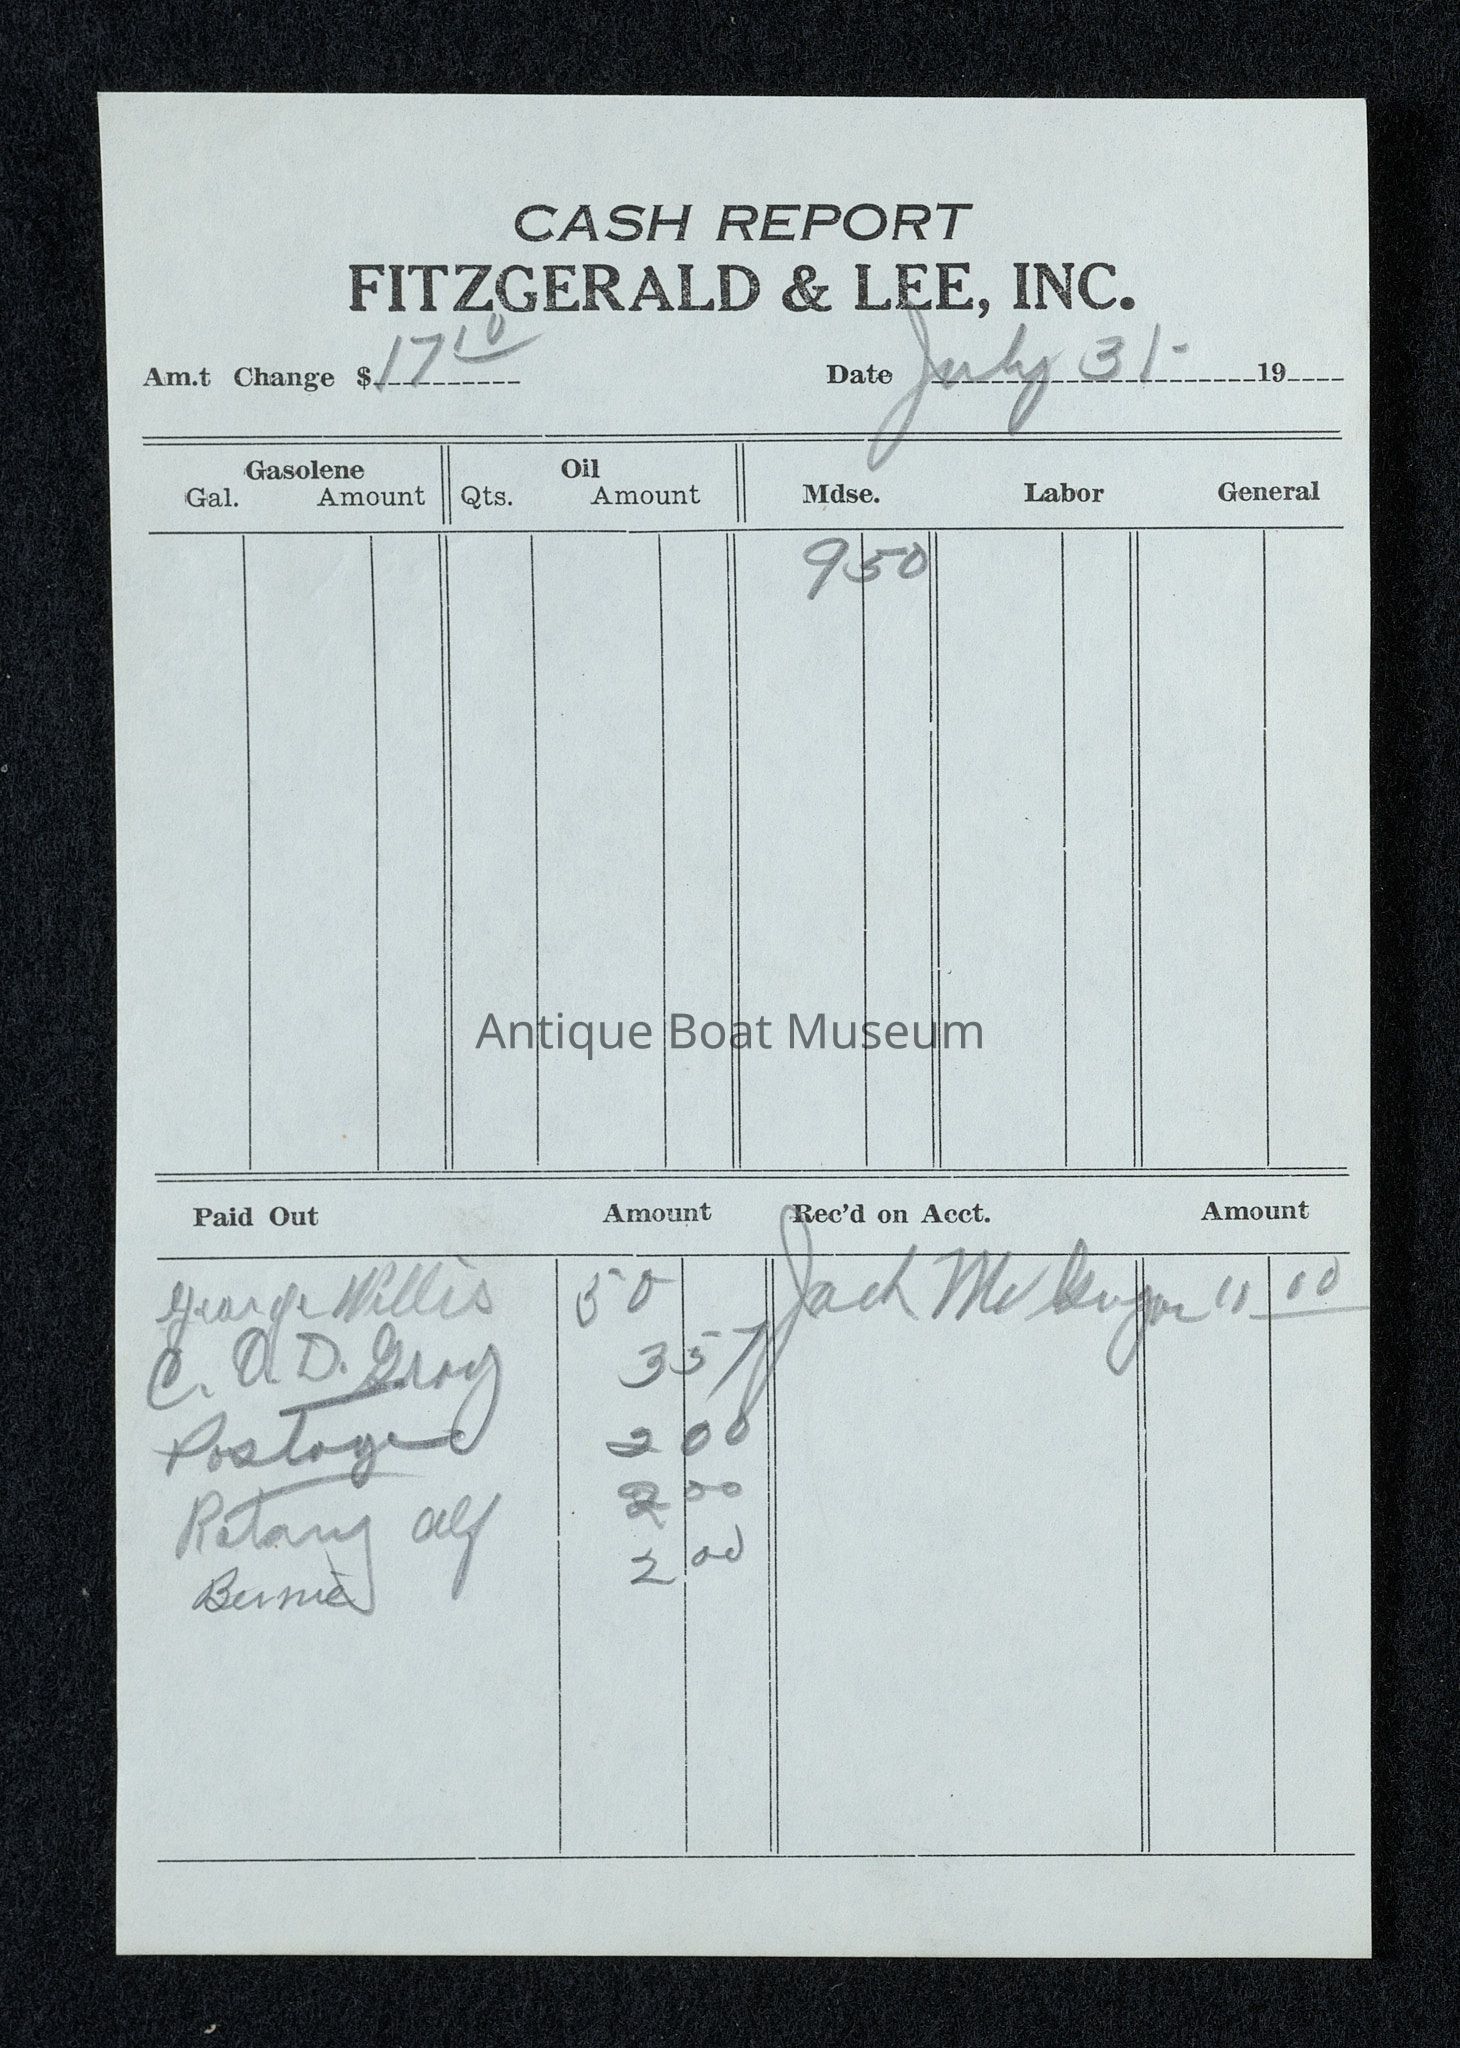 CASH REPORT
FITZGERALD & LEE, INC.
Am.t Change $ 17 10 Date July 31- 19
Gasolene Oil
Gal. Amount Qts. Amount Mdse. Labor General
9 50
Antique Boat Museum
Paid Out Amount Rec'd on Acct. Amount
George Willis 50 Jack 10 00
C. O. D. Gray 3 57
Postage 2 00
Rotary Alf 2 00
Bernie 2 00